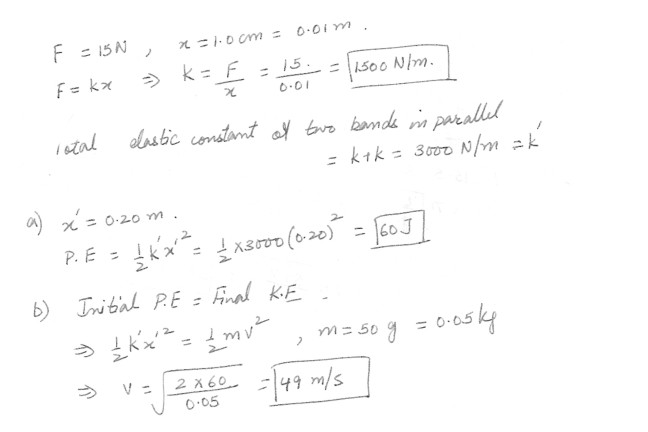 F = 15N , x = 1.0 cm = 0.01 m .
F = kx ⇒ k = F/x = 15./0.01 = 1500 N/m.
Total elastic constant of two bands in parallel
= k+k = 3000 N/m = k'
a) x' = 0.20 m .
P.E = 1/2 k'x'² = 1/2 × 3000 (0.20)² = 60 J
b) Initial P.E = Final K.E .
⇒ 1/2 k'x'² = 1/2 mv² , m = 50 g = 0.05 kg
⇒ v = √(2 × 60/0.05) = 49 m/s